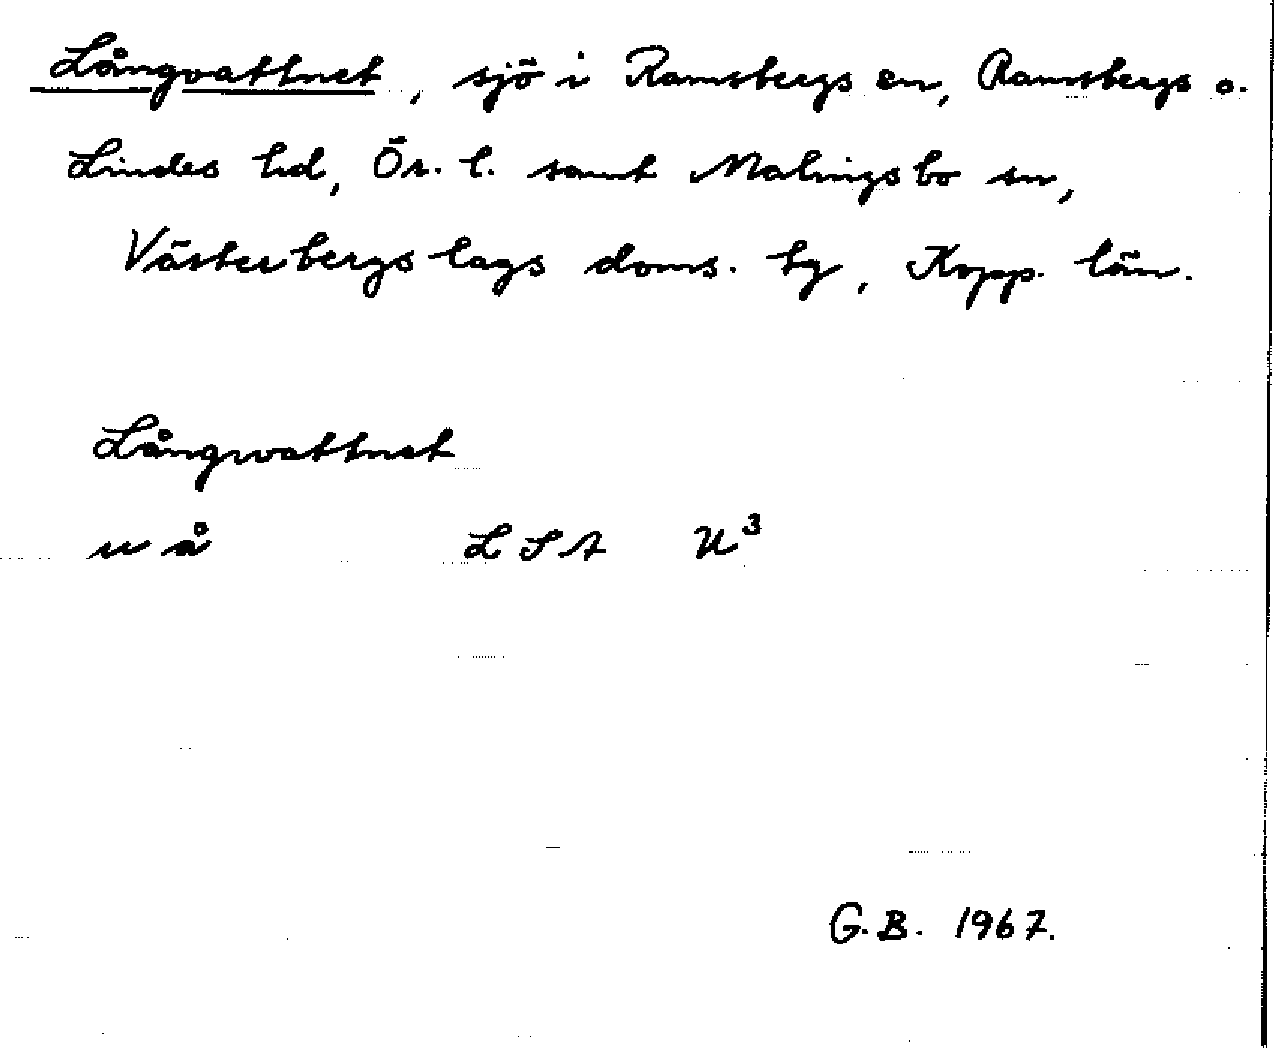 Långvattnet, sjö i Ramsbergs sn, Ramsbergs o.
Lindes hd, Ör. l. samt Malingsbo sn,
Västerbergslags doms. hg, Kopp. län.
Långwattnet
u å LSA U³
G.B. 1967.